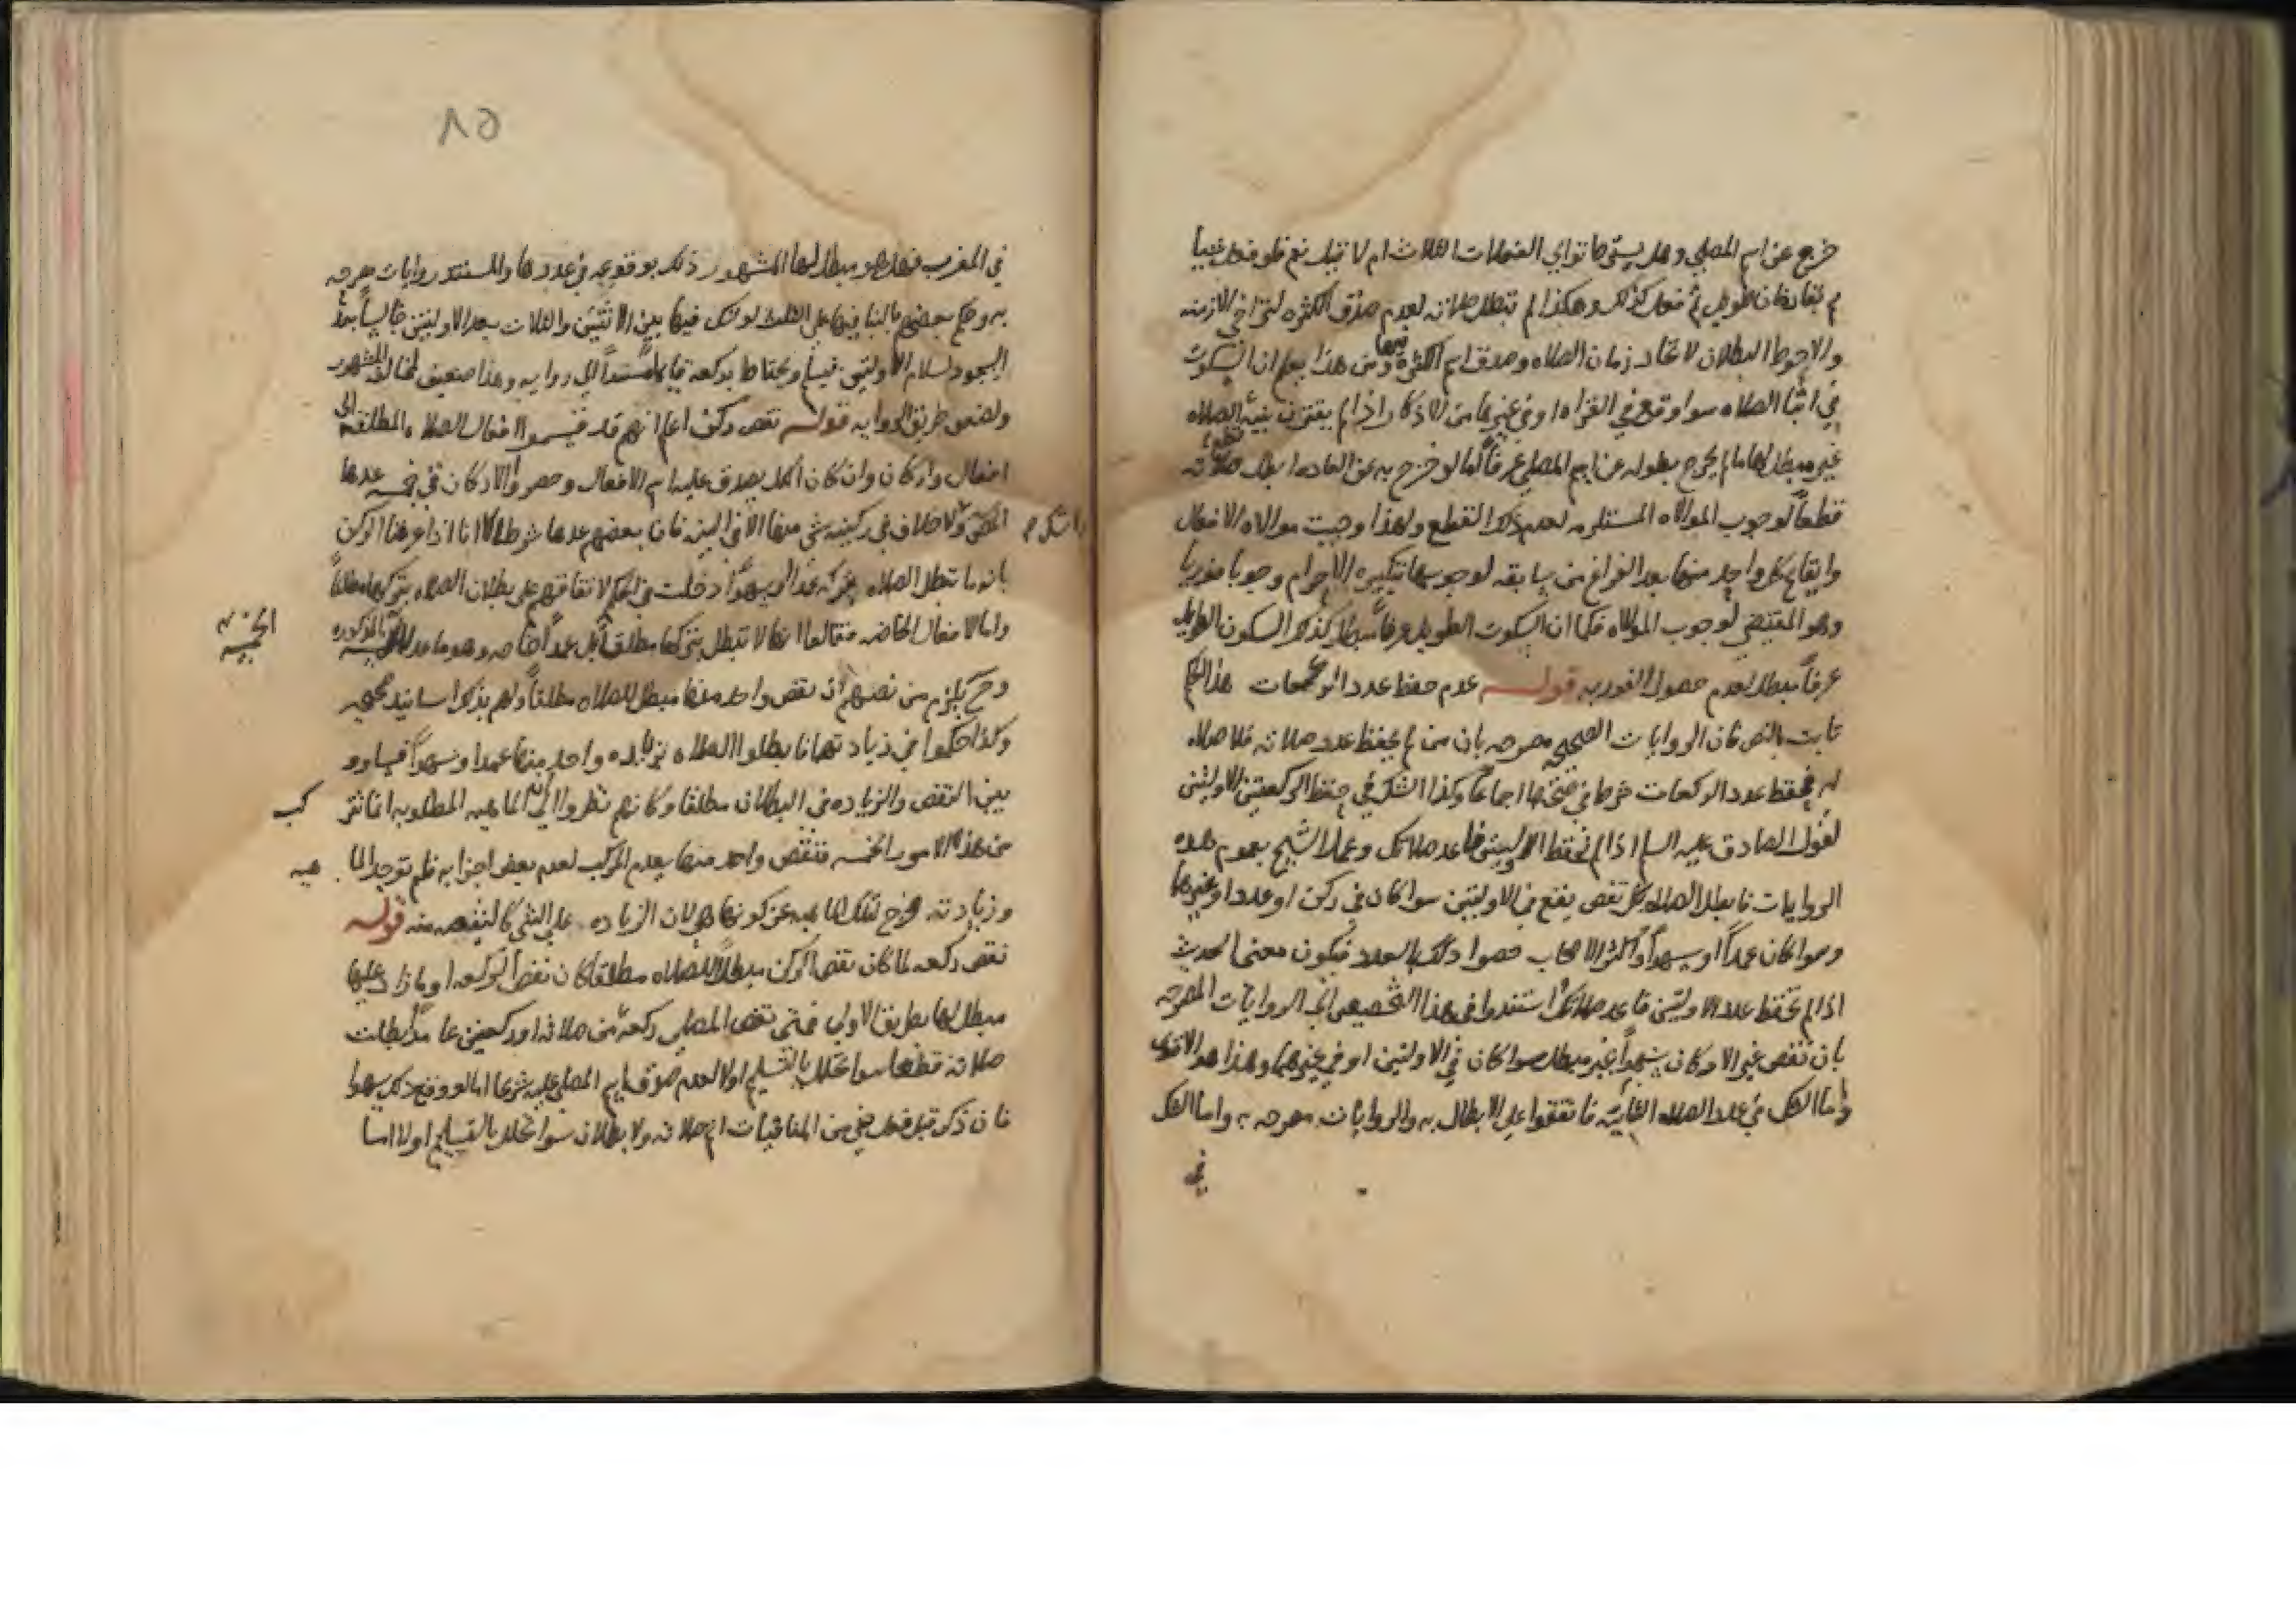 خرج عن اسم المصلي وهل يستوي ما توالي الفعلات الثلاث ام لا قيل نعم فلو فعل شيئا
ثم بقا زمان طويل ثم فعل كذلك وهكذا لم تبطل صلاته لعدم صدق الكثره لتراخي الازمنه
والاحوط البطلان لاتحاد زمان الصلاه وصدق اسم الكثره فيها ومن هذا يعلم ان السكوت
في اثنا الصلاه سوا وقع في القراه او في غيرها من الاذكار اذا لم يقترن بنية الصلاه
غير مبطل لها ما لم يخرج بطوله عن اسم المصلي عرفاً اما لو خرج به عن العاده ابطل صلاته
قطعاً لوجوب الموالاه المستلزمه لعدم ذلك القطع ولهذا وجبت موالاه الافعال
وايقاع كل واحد منها بعد الفراغ من سابقه لوجوبها بتكبيره الاحرام وجوبا فوريا
وهو المقتضي لوجوب الموالاه فكما ان السكوت الطويل عرفاً مبطل كذلك السكون الطويل
عرفاً مبطل لعدم حصول الفوريه قوله عدم حفظ عدد الركعات هذا الحكم
ثابت بالنص فان الروايات الصحيحه مصرحه بان من لم يحفظ عدد صلاته فلا صلاه
له فحفظ عدد الركعات شرط في صحتها اجماعا وكذا الشك في حفظ الركعتين الاوليتين
لقول الصادق عليه السلم اذا لم تحفظ الاوليتين فاعد صلاتك وعمل الشيخ بعموم هذه
الروايات فابطل الصلاه بكل نقص يقع في الاوليتين سوا كان في ركن او عدد او غيرها
وسوا كان عمداً او سهواً واكثر الاصحاب خصوا ذلك بالعدد فيكون معنى الحديث
اذا لم تحفظ عدد الاوليتين فاعد صلاتك واستندوا في هذا التخصيص الى الروايات المصرحه
بان نقص غير الاركان سهواً غير مبطل سوا كان في الاوليتين او في غيرهما وهذا هو الاقوى
واما الشك في عدد الصلاه الثنائية فاتفقوا على الابطال به والروايات مصرحه به واما الشك
في
٨٥
في المغرب فهل هو مبطل لها المشهور ذلك بوقوعه في عددها والمستند روايات صرحه
به وحكم بعضهم بالبنا فيها على الثلث لو شك فيها بين الاثنتين والثلاث بعد الاوليتين جالساً بعد
السجود لسلام الاوليتين فيسلم ويحتاط بركعه قايما مستنداً الى روايه وهذا ضعيف لمخالفه المشهور
ولضعف طريق الروايه قوله نقص ركن اعلم انهم قد قسموا افعال الصلاه المطلقه الى
افعال واركان وان كان الكل يصدق عليه اسم الافعال وحصروا الاركان في خمسه عدها
المص ولا خلاف في ركنيه شي منها الا في النيه فان بعضهم عدها شرطا الا انا اذا عرفنا الركن
بانه ما تبطل الصلاه بتركه عمدا وسهواً دخلت في الحكم لاتفاقهم على بطلان الصلاه بتركها مطلقاً
واما الافعال الخاصه فقالوا انها لا تبطل بتركها مطلقا بل عمداً خاصه وهو ما عدا المذكوره
الخمسه
وح يلزم من نصهم ان نقص واحد منها مبطل للصلاه مطلقاً ولهم بذلك اسانيد صحيحه
وكذا حكموا في زيادتها فابطلوا الصلاه بزياده واحد منها عمدا وسهواً فساووا
بين النقص والزياده في البطلان مطلقا وكانهم نظروا الى ان الماهيه المطلوبه انما تتر كب
من هذه الامور الخمسه فنقص واحد منها يعدم المركب لعدم بعض اجزايه فلم توجد الما هيه
وزيادته تخرج تلك الماهيه عن كونها هي لان الزياده على الشي كالنقص منه قوله
نقص ركعه لما كان نقص الركن مبطلاً للصلاه مطلقا كان نقص الركعه او ما زاد عليها
مبطل لها بطريق الاولى فمتى نقص المصلي ركعة من صلاته او ركعتين عامداً بطلت
صلاته قطعا سوا تحلل بالتسليم اولا لعدم صدق اسم المصلي عليه شرعا اما لو وقع ذلك سهوا
فان ذكر قبل فعل شي من المنافيات اتم صلاته ولا بطلان سوا تحلل بالتسليم اولا اما